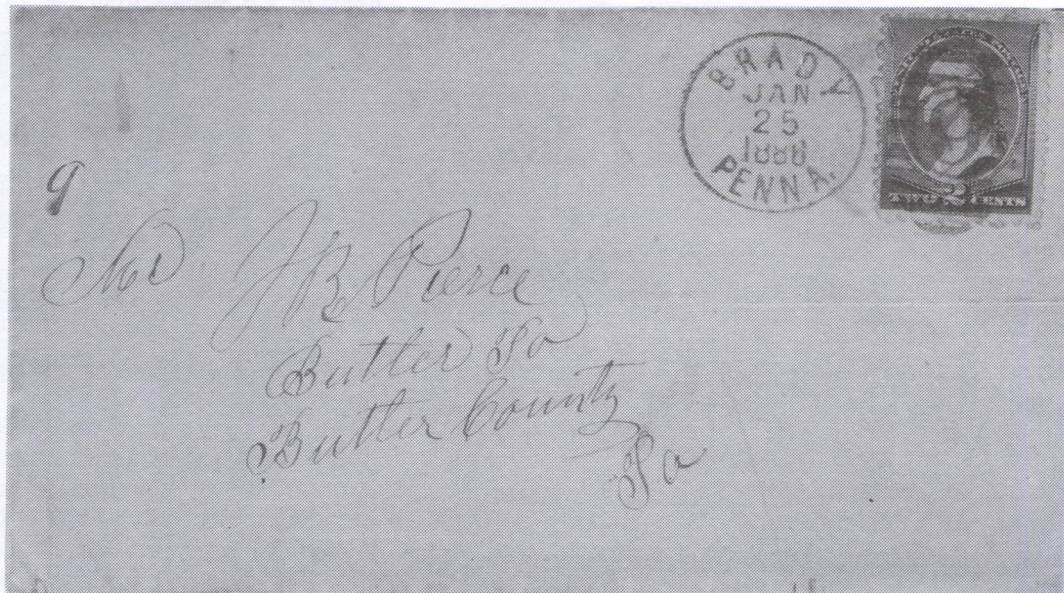 BRADY
JAN
25
1888
PENNA.
2
TWO CENTS
9
Mr J B Pierce
Butler Po
Butler County
Pa